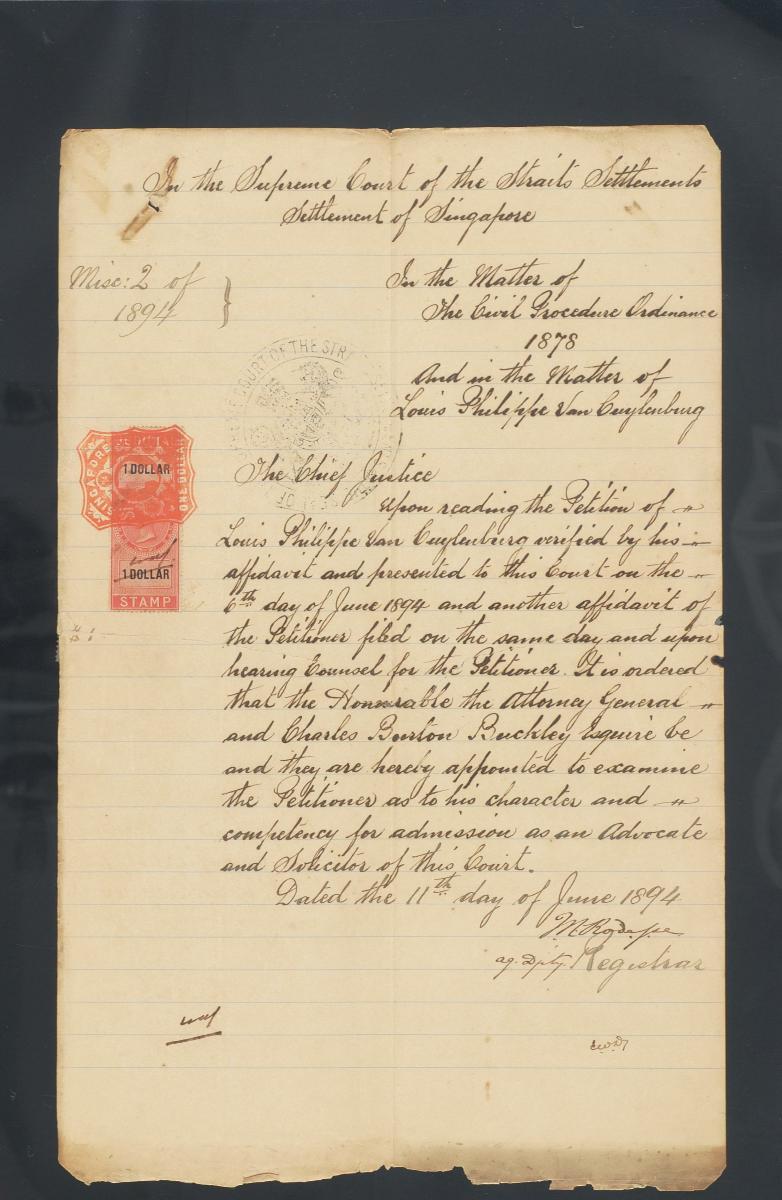 In the Supreme Court of the Straits Settlements
Settlement of Singapore
Misc: 2 of
1894
In the Matter of
The Civil Procedure Ordinance
1878
And in the Matter of
Louis Philippe Van Cuylenburg
COURT OF THE STR
The Chief Justice
Upon reading the Petition of "
Louis Philippe Van Cuylenburg verified by his "
affidavit and presented to this Court on the "
6th day of June 1894 and another affidavit of
the Petitioner filed on the same day and upon
hearing Counsel for the Petitioner. It is ordered
that the Honourable the Attorney General "
and Charles Burton Buckley Esquire be
and they are hereby appointed to examine
the Petitioner as to his character and "
competency for admission as an Advocate
and Solicitor of this Court.
Dated the 11th day of June 1894
ag. Dpty. Registrar
SINGAPORE
1 DOLLAR
ONE DOLLAR
1 DOLLAR
STAMP